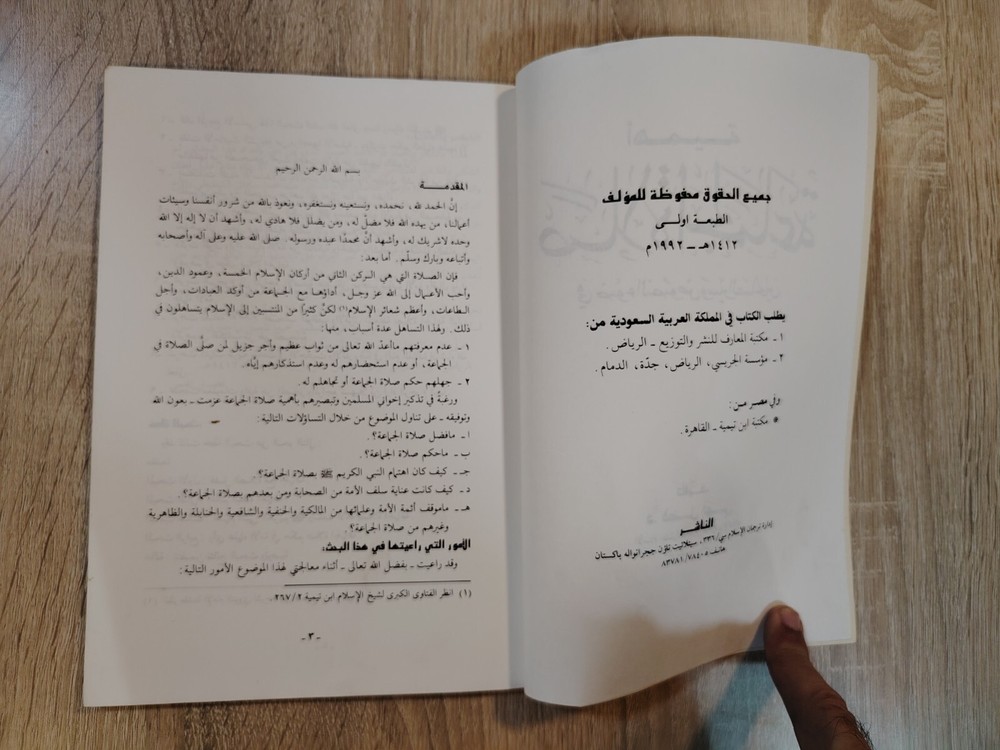 جميع الحقوق محفوظة للمؤلف
الطبعة اولى
١٤١٢هـ ــ ١٩٩٢م
يطلب الكتاب في المملكة العربية السعودية من:
١ ـ مكتبة المعارف للنشر والتوزيع ـ الرياض.
٢ ـ مؤسسة الجريسي، الرياض، جدّة، الدمام.
وفي مصر من:
* مكتبة ابن تيمية ـ القاهرة.
الناشر
إدارة ترجمان الإسلام سي/٣٣٦، سيتلائيت تاؤن ججرانواله باكستان
هاتف ٥-٨٣٧٨١/٧٨٤
بسم الله الرحمن الرحيم
المقدمة
إنَّ الحمد لله، نحمده، ونستعينه ونستغفره، ونعوذ بالله من شرور أنفسنا وسيئات
أعمالنا، من يهده الله فلا مضلّ له، ومن يضلل فلا هادي له، وأشهد أن لا إله إلا الله
وحده لاشريك له، وأشهد أنَّ محمدًا عبده ورسوله. صلى الله عليه وعلى آله وأصحابه
وأتباعه وبارك وسلّم. أما بعد:
فإن الصلاة التي هي الركن الثاني من أركان الإسلام الخمسة، وعمود الدين،
وأحب الأعمال إلى الله عز وجل، أداؤها مع الجماعة من أوكد العبادات، وأجل
الطاعات، وأعظم شعائر الإسلام(١) لكنَّ كثيرًا من المنتسبين إلى الإسلام يتساهلون في
ذلك. ولهذا التساهل عدة أسباب، منها:
١ ـ عدم معرفتهم ماأعدّ الله تعالى من ثواب عظيم وأجر جزيل لمن صلَّى الصلاة في
الجماعة، أو عدم استحضارهم له وعدم استذكارهم إيَّاه.
٢ ـ جهلهم حكم صلاة الجماعة أو تجاهلهم له.
ورغبةً في تذكير إخواني المسلمين وتبصيرهم بأهمية صلاة الجماعة عزمت ـ بعون الله
وتوفيقه ـ على تناول الموضوع من خلال التساؤلات التالية:
ا ـ مافضل صلاة الجماعة؟.
ب ـ ماحكم صلاة الجماعة؟.
جـ ـ كيف كان اهتمام النبي الكريم ﷺ بصلاة الجماعة؟.
د ـ كيف كانت عناية سلف الأمة من الصحابة ومن بعدهم بصلاة الجماعة؟.
هـ ـ ماموقف أئمة الأمة وعلمائها من المالكية والحنفية والشافعية والحنابلة والظاهرية
وغيرهم من صلاة الجماعة؟.
الأمور التي راعيتها في هذا البحث:
وقد راعيت ـ بفضل الله تعالى ـ أثناء معالجتي لهذا الموضوع الأمور التالية:
(١) انظر الفتاوى الكبرى لشيخ الإسلام ابن تيمية ٢٦٧/٢.
ـ ٣ ـ